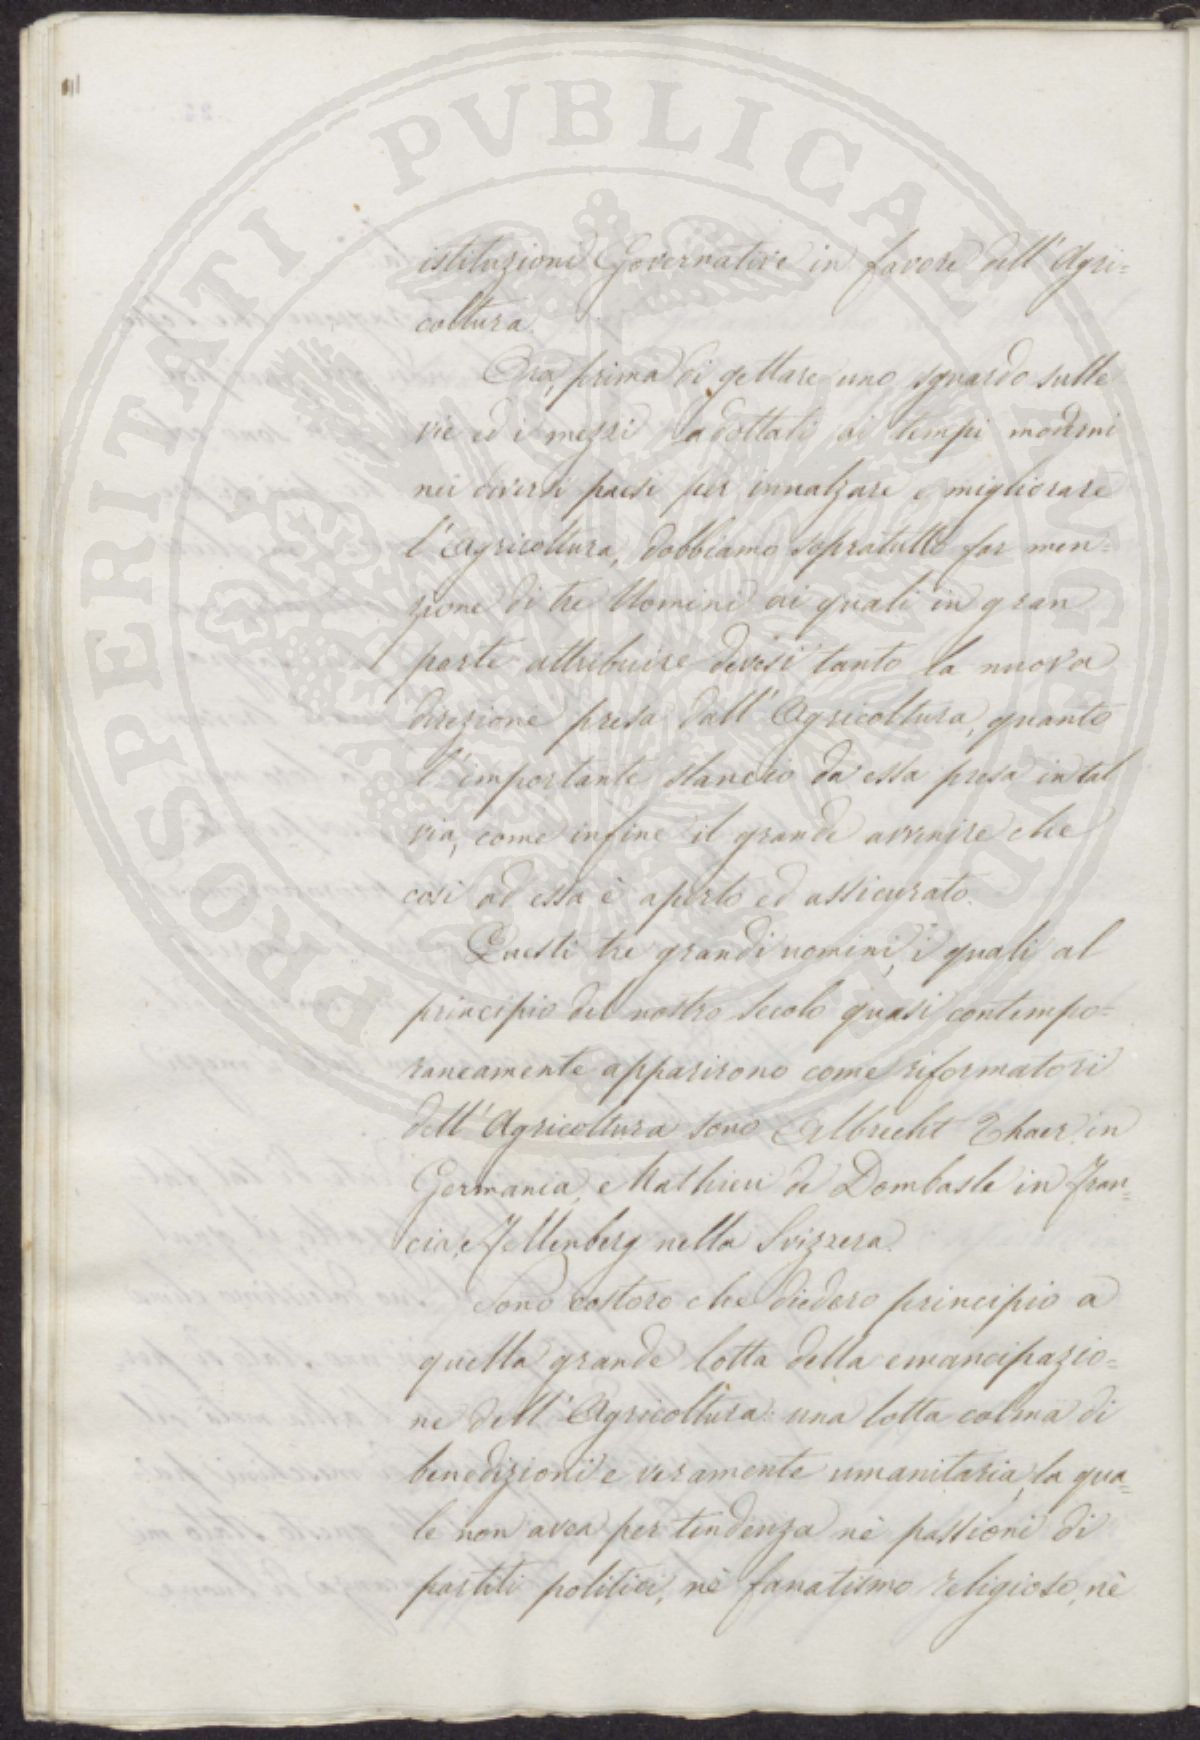 PROSPERITATI PVBLICAE AVGENDAE
istituzioni Governative in favore dell'Agri=
coltura.
Ora, prima di gettare uno sguardo sulle
vie ed i mezzi adottati ai tempi moderni
nei diversi paesi per innalzare e migliorare
l'Agricoltura, dobbiamo sopratutto far men=
zione di tre Uomini ai quali in gran
parte attribuire devesi tanto la nuova
direzione presa dall'Agricoltura, quanto
l'importante slancio da essa presa in tal
via, come infine il grande avvenire che
così ad essa è aperto ed assicurato.
Questi tre grandi uomini, i quali al
principio del nostro secolo quasi contempo=
raneamente apparirono come riformatori
dell'Agricoltura sono Albrecht Thaer in
Germania, e Mathieu de Dombasle in Fran=
cia, e Fellenberg nella Svizzera.
Sono costoro che diedero principio a
quella grande lotta della emancipazio=
ne dell'Agricoltura: una lotta colma di
benedizioni e veramente umanitaria, la qua=
le non avea per tendenza nè passioni di
partiti politici, nè fanatismo religioso, nè